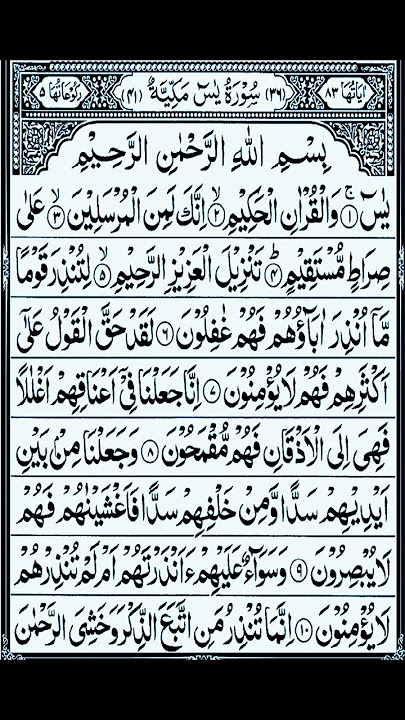 اٰيَاتُهَا ٨٣ (٣٦) سُوْرَةُ يٰسٓ مَكِّيَّةٌ (٤١) رُكُوْعَاتُهَا ٥
بِسْمِ اللّٰهِ الرَّحْمٰنِ الرَّحِيْمِ
يٰسٓ ۚ ﴿١﴾ وَالْقُرْاٰنِ الْحَكِيْمِ ۙ ﴿٢﴾ اِنَّكَ لَمِنَ الْمُرْسَلِيْنَ ۙ ﴿٣﴾ عَلٰى
صِرَاطٍ مُّسْتَقِيْمٍ ؕ ﴿٤﴾ تَنْزِيْلَ الْعَزِيْزِ الرَّحِيْمِ ۙ ﴿٥﴾ لِتُنْذِرَ قَوْمًا
مَّاۤ اُنْذِرَ اٰبَآؤُهُمْ فَهُمْ غٰفِلُوْنَ ﴿٦﴾ لَقَدْ حَقَّ الْقَوْلُ عَلٰۤى
اَكْثَرِهِمْ فَهُمْ لَا يُؤْمِنُوْنَ ﴿٧﴾ اِنَّا جَعَلْنَا فِيْۤ اَعْنَاقِهِمْ اَغْلٰلًا
فَهِيَ اِلَى الْاَذْقَانِ فَهُمْ مُّقْمَحُوْنَ ﴿٨﴾ وَجَعَلْنَا مِنْۢ بَيْنِ
اَيْدِيْهِمْ سَدًّا وَّمِنْ خَلْفِهِمْ سَدًّا فَاَغْشَيْنٰهُمْ فَهُمْ
لَا يُبْصِرُوْنَ ﴿٩﴾ وَسَوَآءٌ عَلَيْهِمْ ءَاَنْذَرْتَهُمْ اَمْ لَمْ تُنْذِرْهُمْ
لَا يُؤْمِنُوْنَ ﴿١٠﴾ اِنَّمَا تُنْذِرُ مَنِ اتَّبَعَ الذِّكْرَ وَخَشِيَ الرَّحْمٰنَ